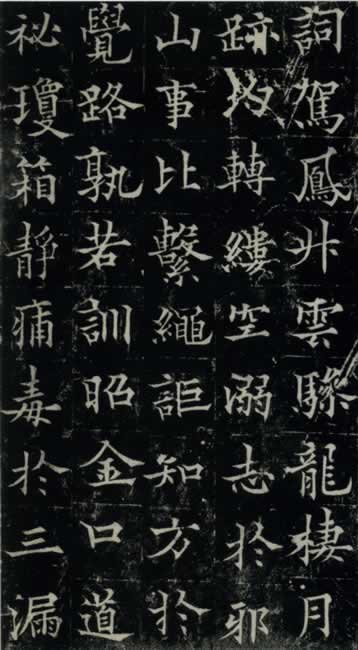 詞駕鳳升雲驂龍棲月
跡均轉縷空溺志於邪
山事比繫繩詎知方於
覺路孰若訓昭金口道
祕瓊箱靜痡毒於三漏